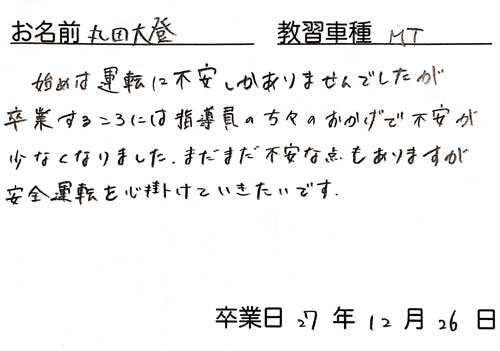 お名前 丸田大登 教習車種 MT
始めは運転に不安しかありませんでしたが
卒業するころには指導員の方々のおかげで不安が
少なくなりました。まだまだ不安な点もありますが
安全運転を心掛けていきたいです。
卒業日 27 年 12 月 26 日